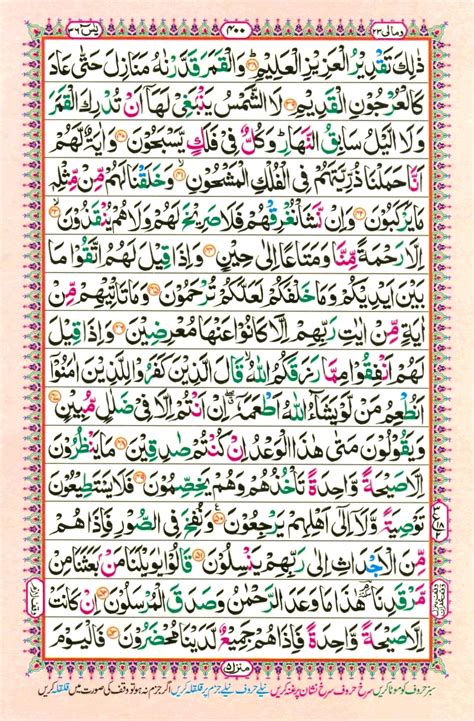 ومالی ٢٣ ٤٠٠ يٰسٓ ٣٦
ذٰلِكَ تَقْدِيْرُ الْعَزِيْزِ الْعَلِيْمِ ۝٣٨ وَالْقَمَرَ قَدَّرْنٰهُ مَنَازِلَ حَتّٰى عَادَ
كَالْعُرْجُوْنِ الْقَدِيْمِ ۝٣٩ لَا الشَّمْسُ يَنْۢبَغِيْ لَهَاۤ اَنْ تُدْرِكَ الْقَمَرَ
وَلَا الَّيْلُ سَابِقُ النَّهَارِ ؕ وَكُلٌّ فِيْ فَلَكٍ يَّسْبَحُوْنَ ۝٤٠ وَاٰيَةٌ لَّهُمْ
اَنَّا حَمَلْنَا ذُرِّيَّتَهُمْ فِي الْفُلْكِ الْمَشْحُوْنِ ۝٤١ وَخَلَقْنَا لَهُمْ مِّنْ مِّثْلِهٖ
مَا يَرْكَبُوْنَ ۝٤٢ وَاِنْ نَّشَاْ نُغْرِقْهُمْ فَلَا صَرِيْخَ لَهُمْ وَلَا هُمْ يُنْقَذُوْنَ ۝٤٣
اِلَّا رَحْمَةً مِّنَّا وَمَتَاعًا اِلٰى حِيْنٍ ۝٤٤ وَاِذَا قِيْلَ لَهُمُ اتَّقُوْا مَا
بَيْنَ اَيْدِيْكُمْ وَمَا خَلْفَكُمْ لَعَلَّكُمْ تُرْحَمُوْنَ ۝٤٥ وَمَا تَاْتِيْهِمْ مِّنْ
اٰيَةٍ مِّنْ اٰيٰتِ رَبِّهِمْ اِلَّا كَانُوْا عَنْهَا مُعْرِضِيْنَ ۝٤٦ وَاِذَا قِيْلَ
لَهُمْ اَنْفِقُوْا مِمَّا رَزَقَكُمُ اللّٰهُ ۙ قَالَ الَّذِيْنَ كَفَرُوْا لِلَّذِيْنَ اٰمَنُوْۤا
اَنُطْعِمُ مَنْ لَّوْ يَشَآءُ اللّٰهُ اَطْعَمَهٗۤ ۖ اِنْ اَنْتُمْ اِلَّا فِيْ ضَلٰلٍ مُّبِيْنٍ ۝٤٧
وَيَقُوْلُوْنَ مَتٰى هٰذَا الْوَعْدُ اِنْ كُنْتُمْ صٰدِقِيْنَ ۝٤٨ مَا يَنْظُرُوْنَ
اِلَّا صَيْحَةً وَّاحِدَةً تَاْخُذُهُمْ وَهُمْ يَخِصِّمُوْنَ ۝٤٩ فَلَا يَسْتَطِيْعُوْنَ
تَوْصِيَةً وَّلَاۤ اِلٰۤى اَهْلِهِمْ يَرْجِعُوْنَ ۝٥٠ وَنُفِخَ فِي الصُّوْرِ فَاِذَا هُمْ
مِّنَ الْاَجْدَاثِ اِلٰى رَبِّهِمْ يَنْسِلُوْنَ ۝٥١ قَالُوْا يٰوَيْلَنَا مَنْۢ بَعَثَنَا مِنْ
مَّرْقَدِنَا ۘ هٰذَا مَا وَعَدَ الرَّحْمٰنُ وَصَدَقَ الْمُرْسَلُوْنَ ۝٥٢ اِنْ كَانَتْ
اِلَّا صَيْحَةً وَّاحِدَةً فَاِذَا هُمْ جَمِيْعٌ لَّدَيْنَا مُحْضَرُوْنَ ۝٥٣ فَالْيَوْمَ
منزل ٥
سبز حروف کو موٹا کریں سرخ حروف سرخ نشان پر غنہ کریں نیلے حروف نیلے جزم پر قلقلہ کریں اگر جزم نہ ہو تو وقف کی صورت میں قلقلہ کریں